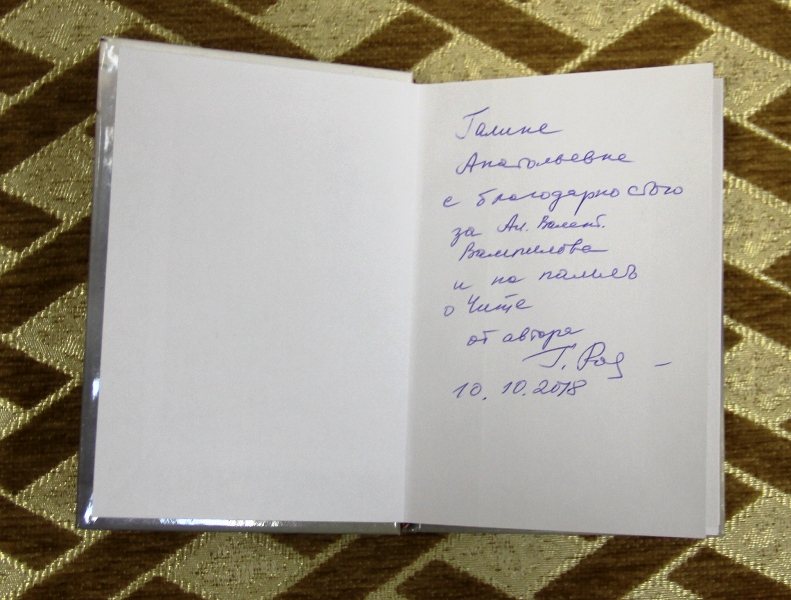 Галине
Анатольевне
с благодарностью
за Ал. Валент.
Вампилова
и на память
о Чите
от автора
Г.
10.10.2018